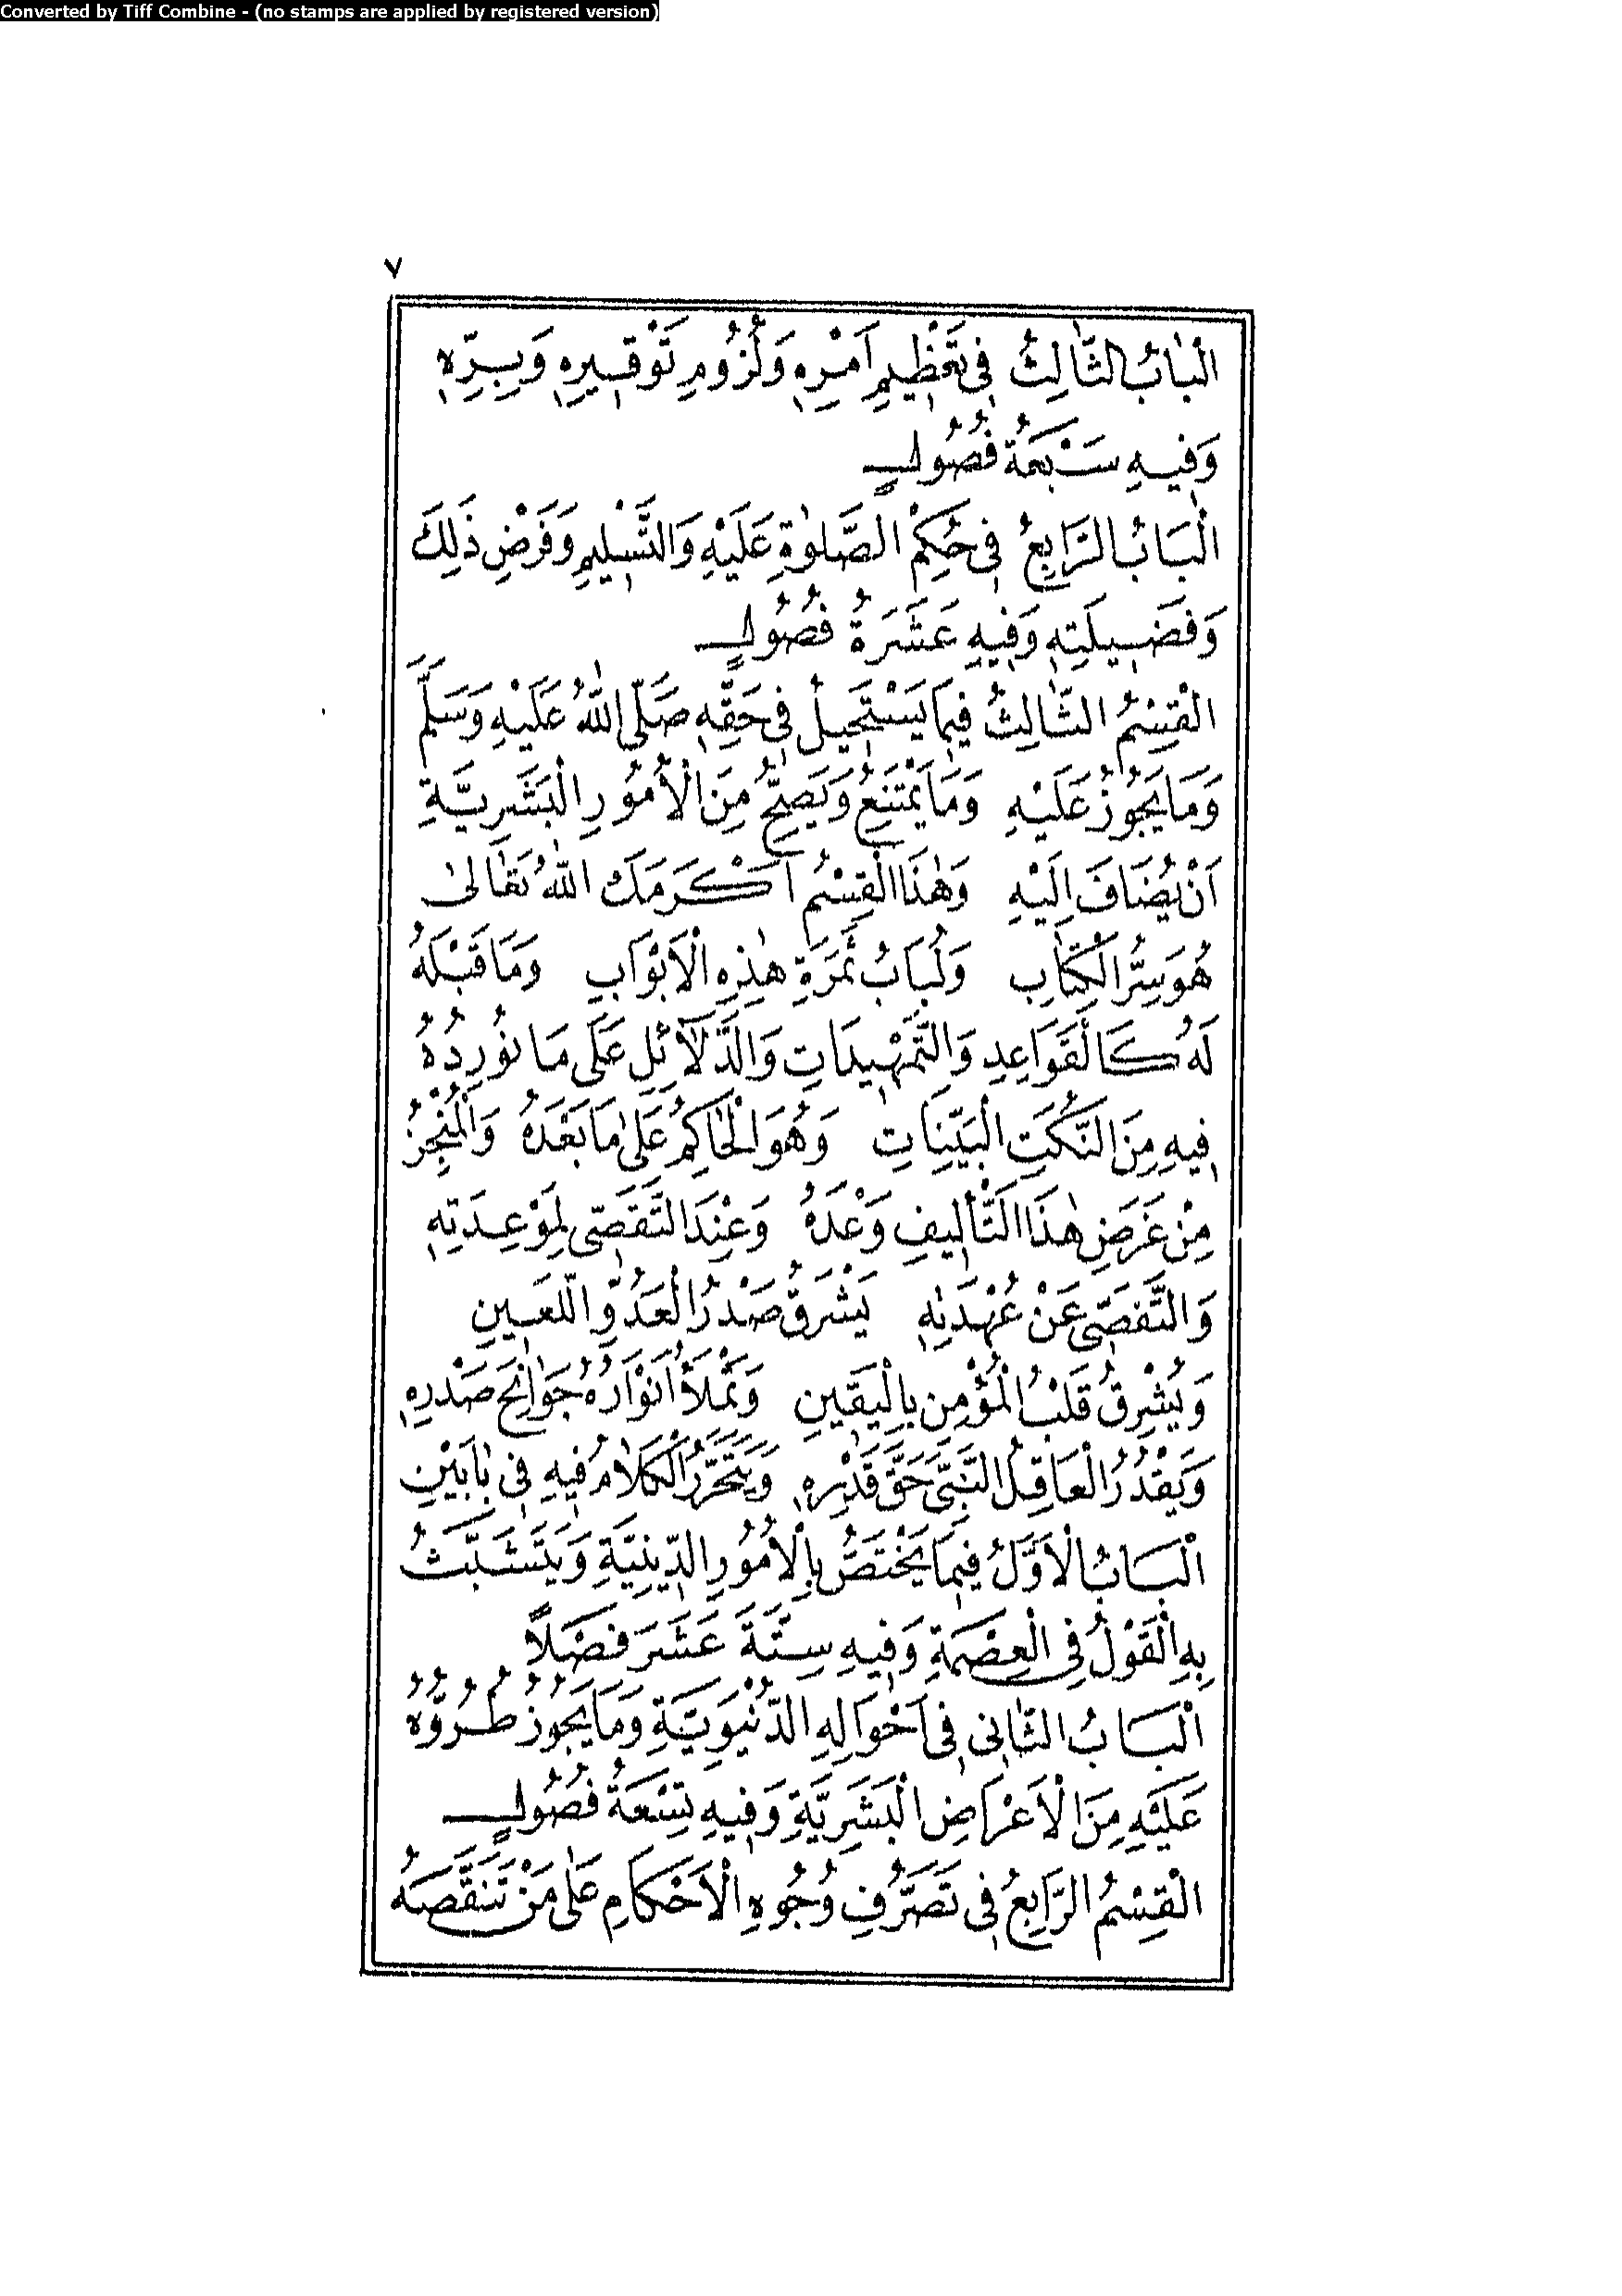 Converted by Tiff Combine - (no stamps are applied by registered version)
٧
اَلْبَابُ الثَّالِثُ فِي تَعْظِيمِ اَمْرِهِ وَلُزُومِ تَوْقِيرِهِ وَبِرِّهِ
وَفِيهِ سَبْعَةُ فُصُولٍ
اَلْبَابُ الرَّابِعُ فِي حُكْمِ الصَّلٰوةِ عَلَيْهِ وَالتَّسْلِيمِ وَفَرْضِ ذٰلِكَ
وَفَضِيلَتِهِ وَفِيهِ عَشَرَةُ فُصُولٍ
اَلْقِسْمُ الثَّالِثُ فِيمَا يَسْتَحِيلُ فِي حَقِّهِ صَلَّى اللّٰهُ عَلَيْهِ وَسَلَّمَ
وَمَا يَجُوزُ عَلَيْهِ وَمَا يَمْتَنِعُ وَيَصِحُّ مِنَ الْأُمُورِ الْبَشَرِيَّةِ
اَنْ يُضَافَ اِلَيْهِ وَهٰذَا الْقِسْمُ اَكْرَمَكَ اللّٰهُ تَعَالٰى
هُوَ سِرُّ الْكِتَابِ وَلُبَابُ ثَمَرَةِ هٰذِهِ الْاَبْوَابِ وَمَا قَبْلَهُ
لَهُ كَالْقَوَاعِدِ وَالتَّمْهِيدَاتِ وَالدَّلَائِلِ عَلَى مَا نُورِدُهُ
فِيهِ مِنَ النُّكَتِ الْبَيِّنَاتِ وَهُوَ الْحَاكِمُ عَلٰى مَا بَعْدَهُ وَالْمُنْجِزُ
مِنْ غَرَضِ هٰذَا التَّأْلِيفِ وَعْدَهُ وَعِنْدَ التَّقَصِّي لِمَوْعِدَتِهِ
وَالتَّفَصِّي عَنْ عُهْدَتِهِ يَشْرَقُ صَدْرُ الْعَدُوِّ اللَّعِينِ
وَيُشْرِقُ قَلْبُ الْمُؤْمِنِ بِالْيَقِينِ وَتَمْلَأُ اَنْوَارُهُ جَوَانِحَ صَدْرِهِ
وَيَقْدُرُ الْعَاقِلُ النَّبِيَّ حَقَّ قَدْرِهِ وَيَتَحَرَّرُ الْكَلَامُ فِيهِ فِي بَابَيْنِ
اَلْبَابُ الْاَوَّلُ فِيمَا يَخْتَصُّ بِالْاُمُورِ الدِّينِيَّةِ وَيَتَشَبَّثُ
بِهِ الْقَوْلُ فِي الْعِصْمَةِ وَفِيهِ سِتَّةَ عَشَرَ فَصْلًا
اَلْبَابُ الثَّانِي فِي اَحْوَالِهِ الدُّنْيَوِيَّةِ وَمَا يَجُوزُ طُرُوُّهُ
عَلَيْهِ مِنَ الْاَعْرَاضِ الْبَشَرِيَّةِ وَفِيهِ تِسْعَةُ فُصُولٍ
اَلْقِسْمُ الرَّابِعُ فِي تَصَرُّفِ وُجُوهِ الْاَحْكَامِ عَلٰى مَنْ تَنَقَّصَهُ